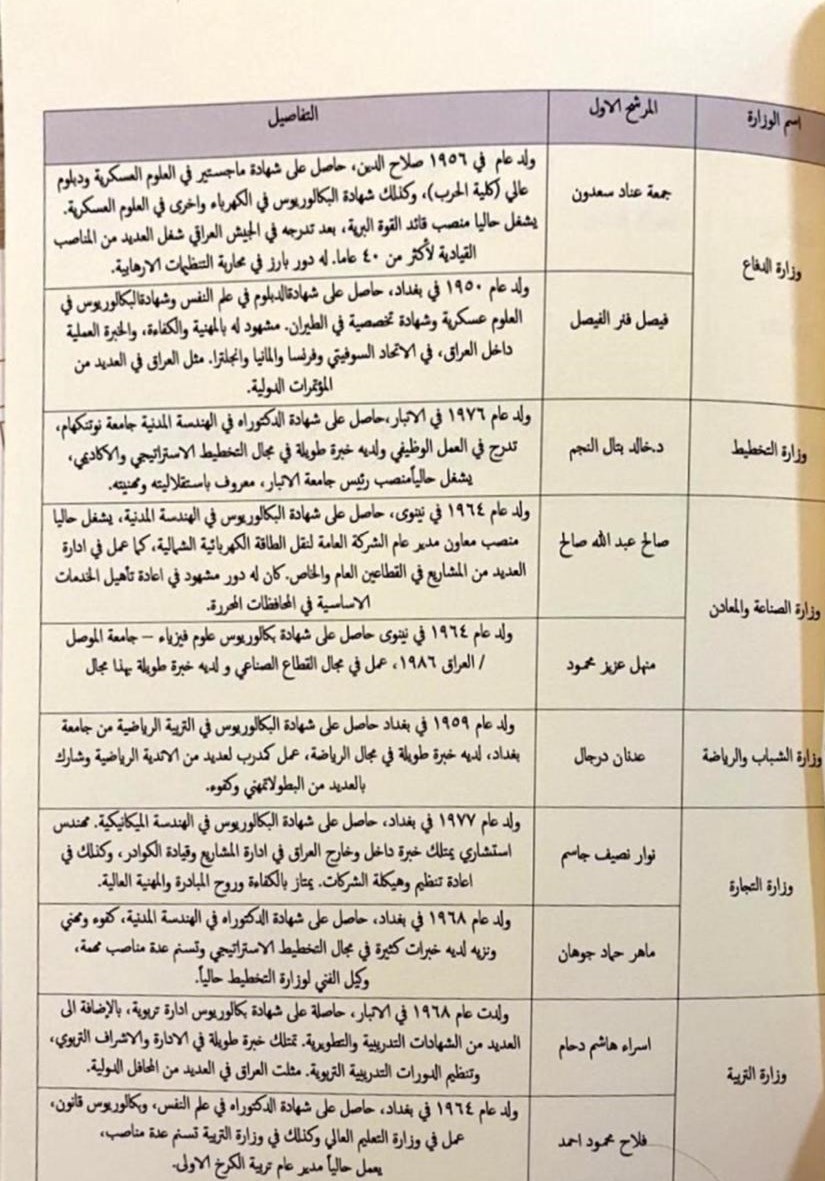 اسم الوزارة
المرشح الاول
التفاصيل
وزارة الدفاع
جمعة عناد سعدون
ولد عام في ١٩٥٦ صلاح الدين، حاصل على شهادة ماجستير في العلوم العسكرية ودبلوم
عالي (كلية الحرب)، وكذلك شهادة البكالوريوس في الكهرباء واخرى في العلوم العسكرية.
يشغل حاليا منصب قائد القوة البرية، بعد تدرجه في الجيش العراقي شغل العديد من المناصب
القيادية لأكثر من ٤٠ عاما. له دور بارز في محاربة التنظيمات الارهابية.
فيصل فنر الفيصل
ولد عام ١٩٥٠ في بغداد، حاصل على شهادةالدبلوم في علم النفس وشهادةالبكالوريوس في
العلوم عسكرية وشهادة تخصصية في الطيران. مشهود له بالمهنية والكفاءة، والخبرة العملية
داخل العراق، في الاتحاد السوفيتي وفرنسا والمانيا وانجلترا. مثل العراق في العديد من
المؤتمرات الدولية.
وزارة التخطيط
د.خالد بتال النجم
ولد عام ١٩٧٦ في الانبار،حاصل على شهادة الدكتوراه في الهندسة المدنية جامعة نوتنكهام،
تدرج في العمل الوظيفي ولديه خبرة طويلة في مجال التخطيط الاستراتيجي والاكاديمي،
يشغل حالياًمنصب رئيس جامعة الانبار، معروف باستقلاليته ومهنيته.
وزارة الصناعة والمعادن
صالح عبد الله صالح
ولد عام ١٩٦٤ في نينوى، حاصل على شهادة البكالوريوس في الهندسة المدنية، يشغل حاليا
منصب معاون مدير عام الشركة العامة لنقل الطاقة الكهربائية الشمالية، كما عمل في ادارة
العديد من المشاريع في القطاعين العام والخاص.كان له دور مشهود في اعادة تأهيل الخدمات
الاساسية في المحافظات المحررة.
منهل عزيز محمود
ولد عام ١٩٦٤ في نينوى حاصل على شهادة بكالوريوس علوم فيزياء – جامعة الموصل
/ العراق ١٩٨٦، عمل في مجال القطاع الصناعي و لديه خبرة طويلة بهذا مجال
وزارة الشباب والرياضة
عدنان درجال
ولد عام ١٩٥٩ في بغداد حاصل على شهادة البكالوريوس في التربية الرياضية من جامعة
بغداد، لديه خبرة طويلة في مجال الرياضة، عمل كمدرب لعديد من الاندية الرياضية وشارك
بالعديد من البطولاتمهني وكفوء.
وزارة التجارة
نوار نصيف جاسم
ولد عام ١٩٧٧ في بغداد، حاصل على شهادة البكالوريوس في الهندسة الميكانيكية. مهندس
استشاري يمتلك خبرة داخل وخارج العراق في ادارة المشاريع وقيادة الكوادر، وكذلك في
اعادة تنظيم وهيكلة الشركات. يمتاز بالكفاءة وروح المبادرة والمهنية العالية.
ماهر حماد جوهان
ولد عام ١٩٦٨ في بغداد، حاصل على شهادة الدكتوراه في الهندسة المدنية، كفوء ومهني
ونزيه لديه خبرات كثيرة في مجال التخطيط الاستراتيجي وتسنم عدة مناصب مهمة،
وكيل الفني لوزارة التخطيط حالياً.
وزارة التربية
اسراء هاشم دحام
ولدت عام ١٩٦٨ في الانبار، حاصلة على شهادة بكالوريوس ادارة تربوية، بالإضافة الى
العديد من الشهادات التدريبية والتطويرية. تمتلك خبرة طويلة في الادارة والاشراف التربوي،
وتنظيم الدورات التدريبية التربوية. مثلت العراق في العديد من المحافل الدولية.
فلاح محمود احمد
ولد عام ١٩٦٤ في بغداد، حاصل على شهادة الدكتوراه في علم النفس، وبكالوريوس قانون،
عمل في وزارة التعليم العالي وكذلك في وزارة التربية تسنم عدة مناصب،
يعمل حالياً مدير عام تربية الكرخ الاولى.